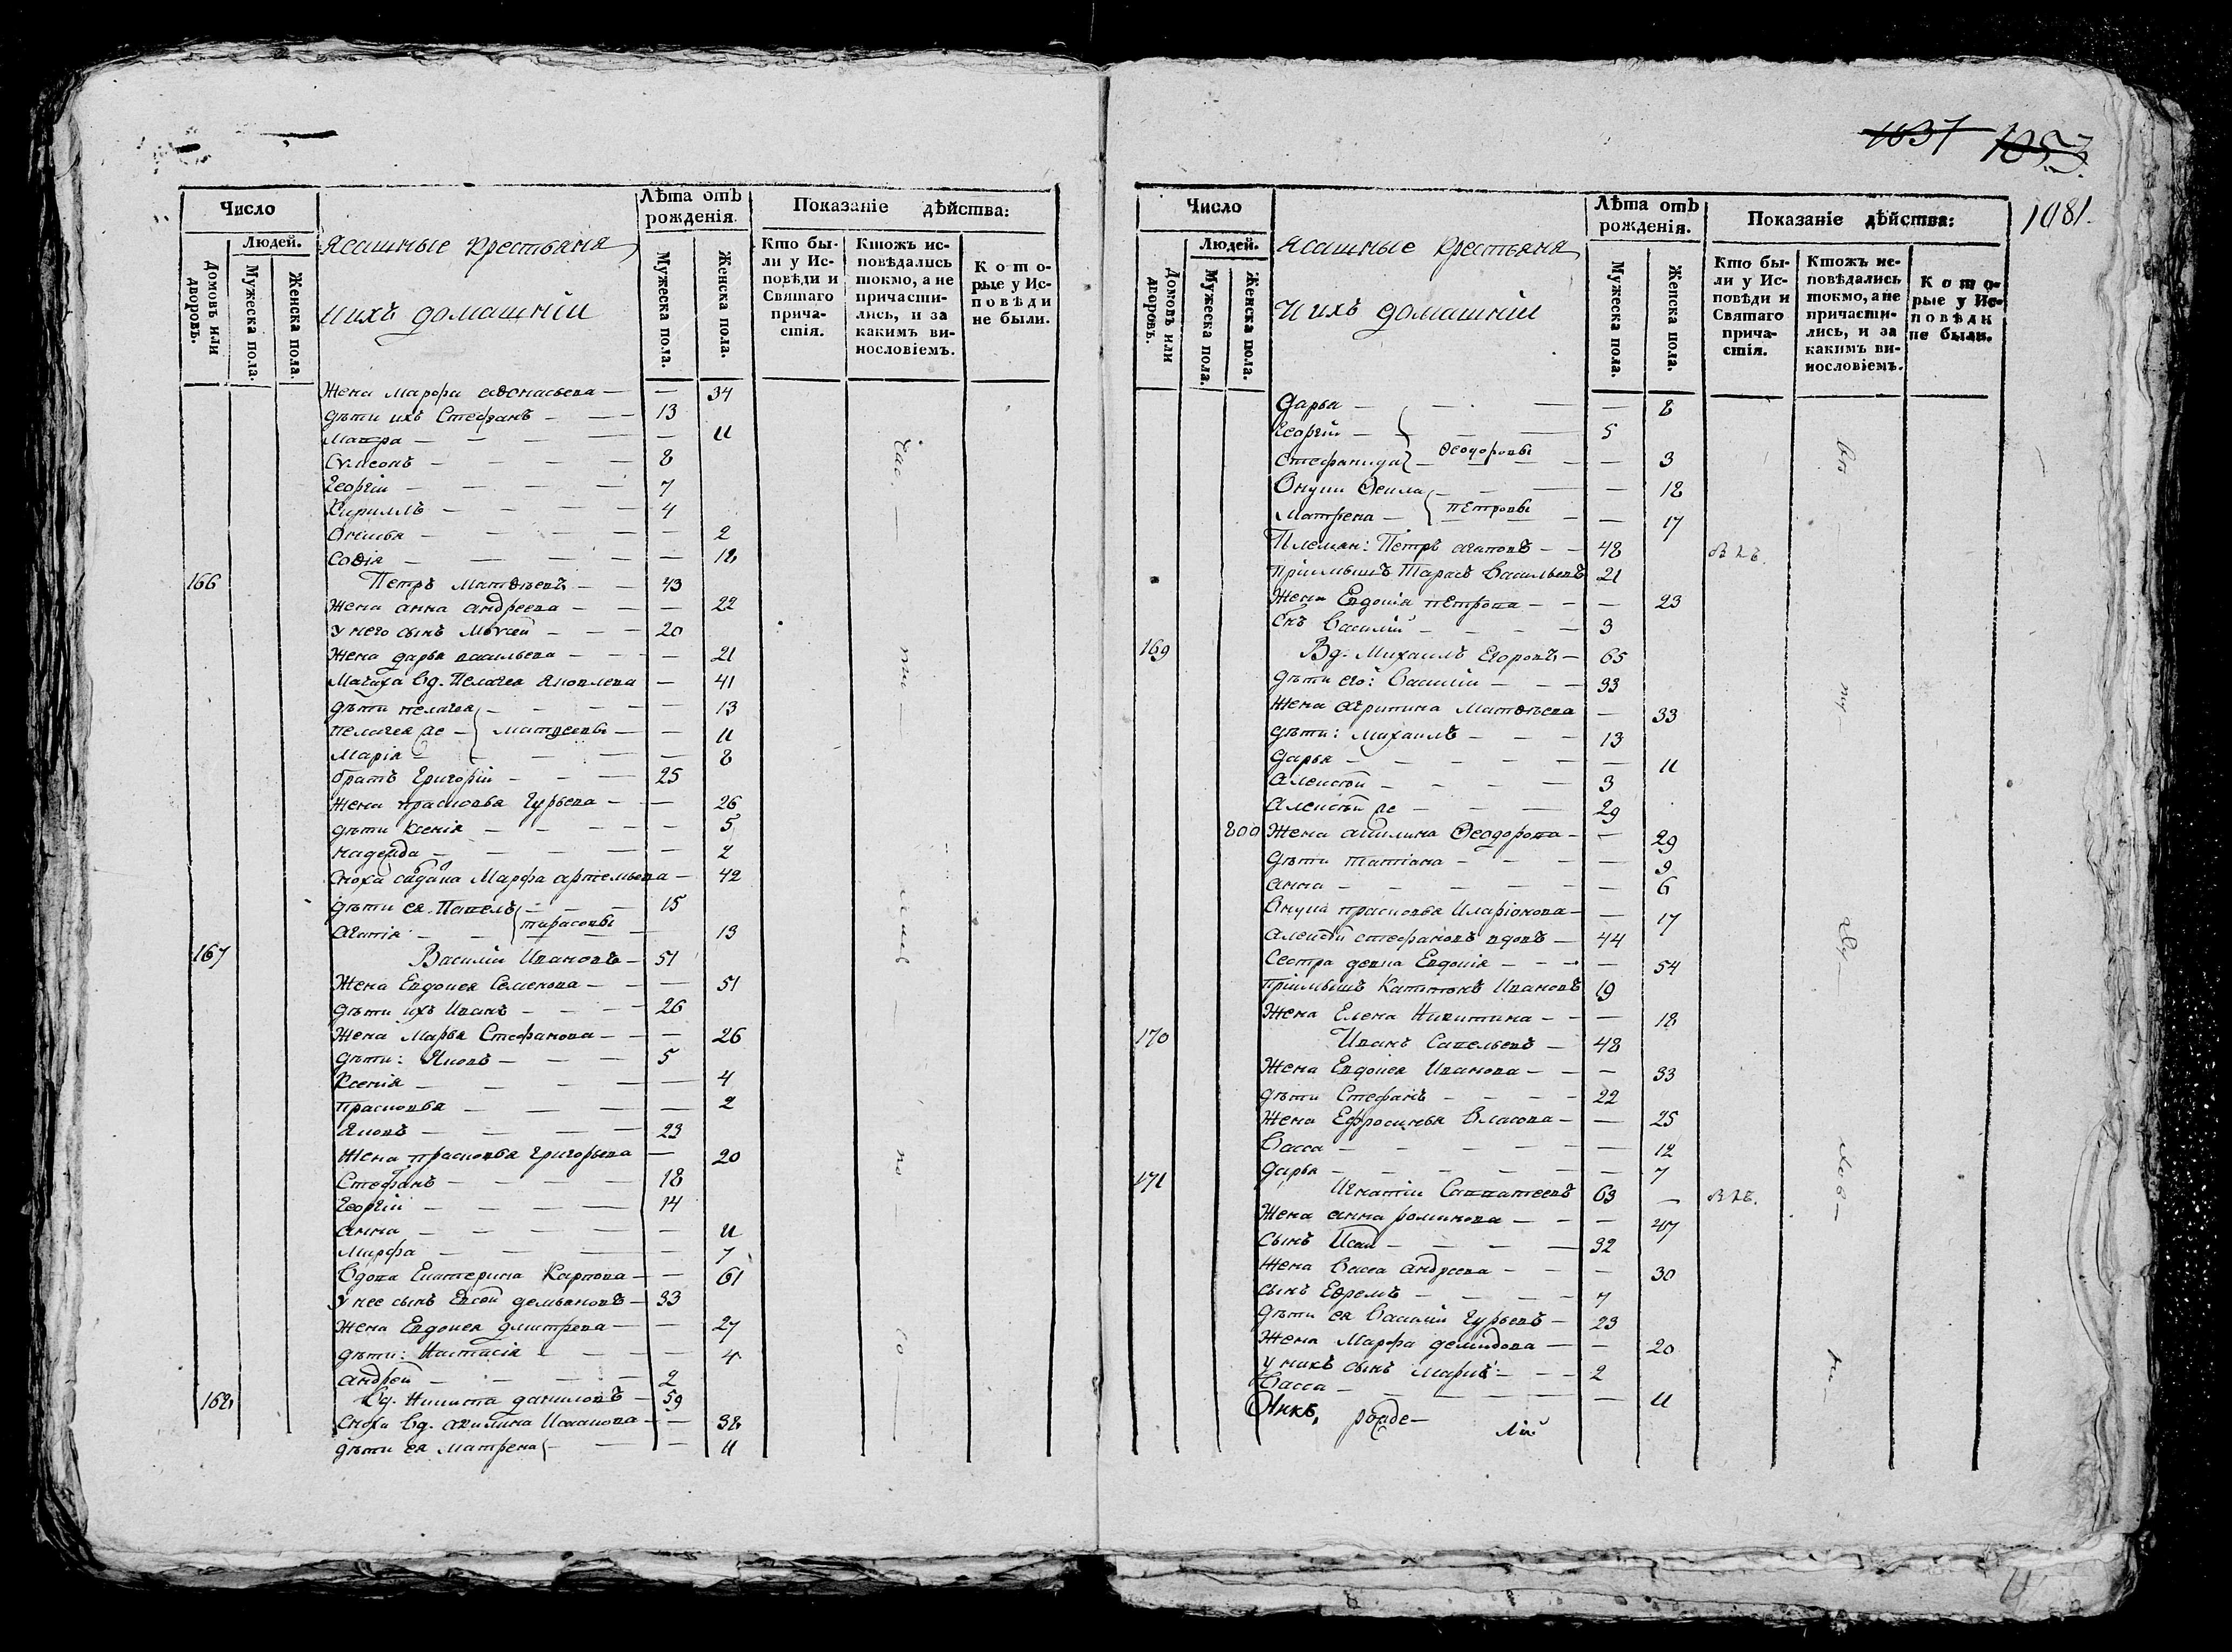 Число
Людей.
Домовъ или дворовъ.
Мужеска пола.
Женска пола.
Ясашные крестьяня
и ихъ домашніи
Лѣта отъ рожденія.
Мужеска пола.
Женска пола.
Показаніе дѣйства:
Кто бы-
ли у Ис-
повѣди и
Святаго
прича-
стія.
Ктожъ ис-
повѣдались
токмо, а не
причасти-
лись, и за
какимъ ви-
нословіемъ.
Кото-
рые у Ис-
повѣди
не были.
Жена Марфа — — 34
дѣти ихъ Стефанъ — — 13
— — 11
Сѵмеонъ — — 8
Георгіи — — 7
Кириллъ — — 4
— — 2
Софія — — 18
166 Петръ Матвѣевъ — — 43
Жена анна андреева — — 22
у него сынъ Мѡѵсей — — 20
Жена дарья васильева — — 21
Мачиха вд. Пелагея яковлева — 41
дѣти пелагея — — 13
пелагея же — матвеевы — — 11
Марія — — 8
братъ Григорій — — 25
Жена прасковья Гурьева — — 26
дѣти Ксенія — — 5
надежда — — 2
Сноха Марфа артемьева — 42
дѣти ея Павелъ — — 15
тарасовы
Агапія — — 13
167 Василіи Ивановъ — 51
Жена Евдокея Семенова — — 51
дѣти ихъ Иванъ — — 26
Жена Марья Стефанова — — 26
дѣти: Яковъ — — 5
Ксенія — — 4
прасковья — — 2
Яковъ — — 23
Жена прасковья Григорьева — 20
Стефанъ — — 18
Георгій — — 14
анна — — 11
Марфа — — 7
Вдова Екатерина Карпова — — 61
У нее сынъ демьяновъ — 33
Жена Евдокея дмитрева — — 27
дѣти: Настасія — — 4
андрей — — 2
168 Вд. Никита даниловъ — 59
Сноха вд. акилина — — 38
дѣти ея матрена — — 11
1037 1053
1081.
Число
Людей.
Домовъ или дворовъ.
Мужеска пола.
Женска пола.
Ясашные крестьяня
и ихъ домашніи
Лѣта отъ рожденія.
Мужеска пола.
Женска пола.
Показаніе дѣйства:
Кто бы-
ли у Ис-
повѣди и
Святаго
прича-
стія.
Ктожъ ис-
повѣдались
токмо, а не
причасти-
лись, и за
какимъ ви-
нословіемъ.
Кото-
рые у Ис-
повѣди
не были.
дарья — — 8
Георгіи — — 5
Ѳеодоровы
Стефанида — — 3
Внуки Ѳекла — — 18
Матрена — петровы — 17
Племян: Петръ агаповъ — — 48
пріимышъ Тарасъ Васильевъ 21
Жена Евдокія петрова — — 23
Снъ Василій — — 3
169 Вд. Михаилъ Егоровъ — 65
дѣти его: Василіи — — 33
Жена агрипина Матвѣева — 33
дѣти: михаилъ — — 13
дарья — — 11
алексѣй — — 3
алексѣй же — — 29
800 Жена акилина Ѳеодорова — — 29
дѣти татіана — — 9
анна — — 6
Внука прасковья Иларіонова — 17
алексѣй стефановъ вдовъ — 44
Сестра девка Евдокія — — 54
пріимышъ Капитонъ Ивановъ 19
Жена Елена Никитина — — 18
170 Иванъ Савельевъ — 48
Жена Евдокея Иванова — — 33
дѣти Стефанъ — — 22
Жена Ефросинья Власова — — 25
Васса — — 12
дарья — — 7
171 Игнатіи Савватеевъ 63 —
Жена анна романова — — 47
сынъ Исай — — 32
Жена Васса андреева — — 30
сынъ Ефремъ — — 7
дѣти ея Василій Гурьевъ — 23
Жена Марфа демидова — — 20
у нихъ сынъ — — 2
Васса — — 11